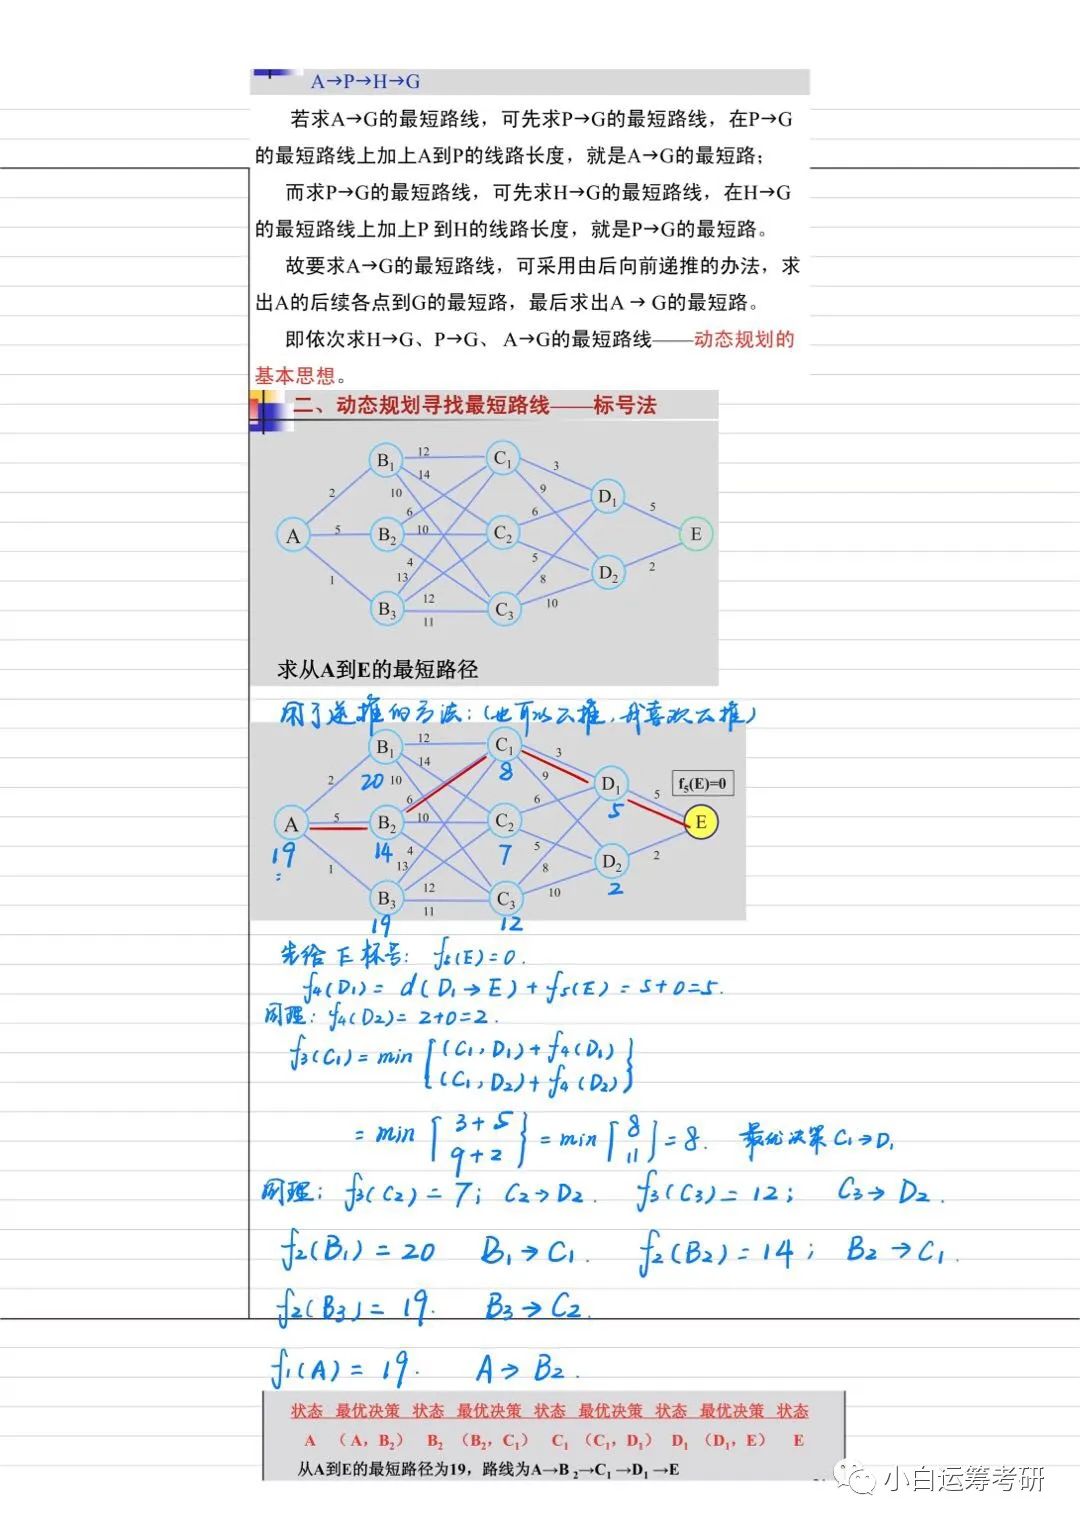 A→P→H→G
若求A→G的最短路线，可先求P→G的最短路线，在P→G
的最短路线上加上A到P的线路长度，就是A→G的最短路；
而求P→G的最短路线，可先求H→G的最短路线，在H→G
的最短路线上加上P 到H的线路长度，就是P→G的最短路。
故要求A→G的最短路线，可采用由后向前递推的办法，求
出A的后续各点到G的最短路，最后求出A → G的最短路。
即依次求H→G、P→G、 A→G的最短路线——动态规划的
基本思想。
二、动态规划寻找最短路线——标号法
B₁ 12 C₁
14 3
2 10 9 D₁
6 6 5
A 5 B₂ 10 C₂ E
4 5
1 13 8 D₂ 2
B₃ 12 C₃ 10
11
求从A到E的最短路径
用了逆推的方法：（也可以正推，我喜欢正推）
B₁ 12 C₁ 3
20 14 8
2 10 9 D₁ 5 f₅(E)=0
6 6 5
A 5 B₂ 10 C₂ E
19 14 4 7 5
1 13 8 D₂ 2
12 10 2
B₃ 11 C₃
19 12
先给E标号： f₅(E)=0.
f₄(D₁)= d(D₁→E)+f₅(E)=5+0=5.
同理：f₄(D₂)=2+0=2.
f₃(C₁)=min [(C₁,D₁)+f₄(D₁)
(C₁,D₂)+f₄(D₂)}
=min [3+5
9+2} =min [8
11]=8. 最优决策 C₁→D₁
同理：f₃(C₂)=7; C₂→D₂. f₃(C₃)=12; C₃→D₂.
f₂(B₁)=20 B₁→C₁. f₂(B₂)=14; B₂→C₁.
f₂(B₃)=19. B₃→C₂.
f₁(A)=19. A→B₂.
状态 最优决策 状态 最优决策 状态 最优决策 状态 最优决策 状态
A （A，B₂） B₂ （B₂，C₁） C₁ （C₁，D₁） D₁ （D₁，E） E
从A到E的最短路径为19，路线为A→B ₂→C₁ →D₁ →E
小白运筹考研